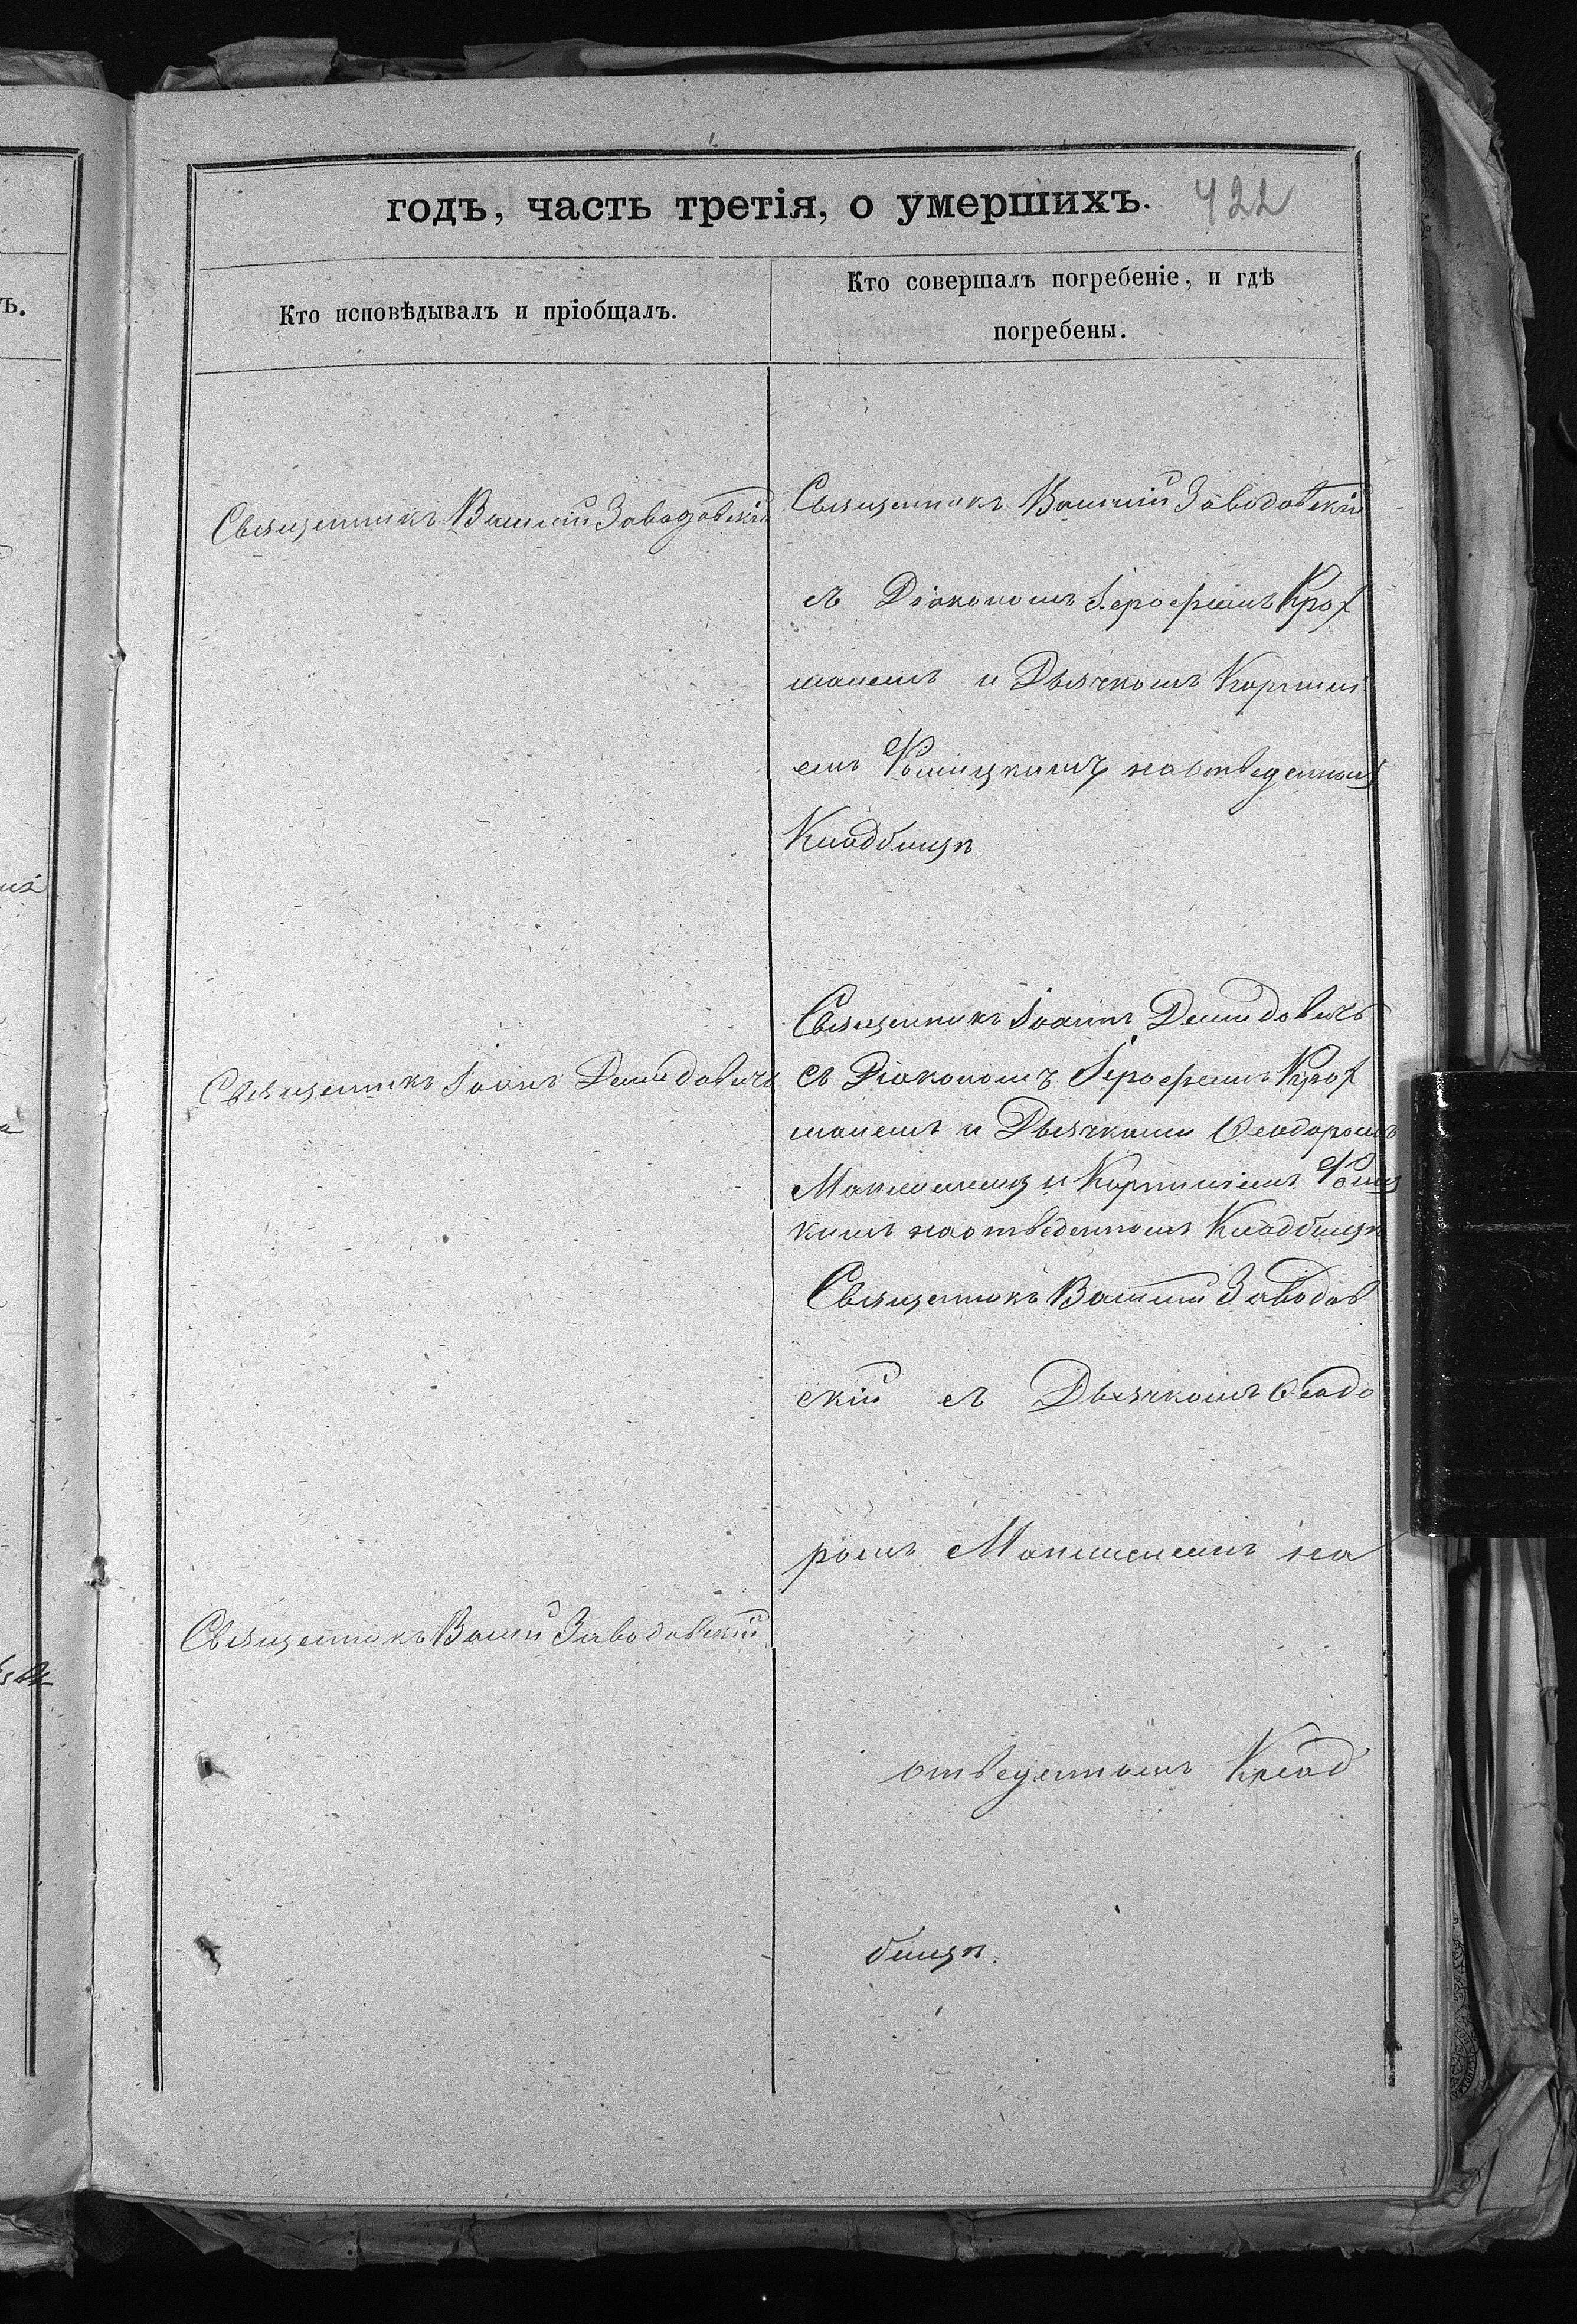 годъ, часть третія, о умершихъ. 422
Кто исповѣдывалъ и пріобщалъ.
Кто совершалъ погребеніе, и гдѣ
погребены.
Священникъ Василій Заводовскій
Священникъ Василій Заводовскій
съ Діакономъ Іероѳеемъ
и Дьячкомъ
на отведенномъ
Кладбищѣ
Священникъ Іоаннъ Демидовичъ
Священникъ Іоаннъ Демидовичъ
съ Діакономъ Іероѳеемъ
и Дьячками Ѳеодоромъ
и
кимъ на отведенномъ Кладбищѣ
Священникъ Василій Заводовскій
Священникъ Василій Заводов
скій съ Дьячкомъ Ѳеодо
ромъ на
отведенномъ Клад
бищѣ.